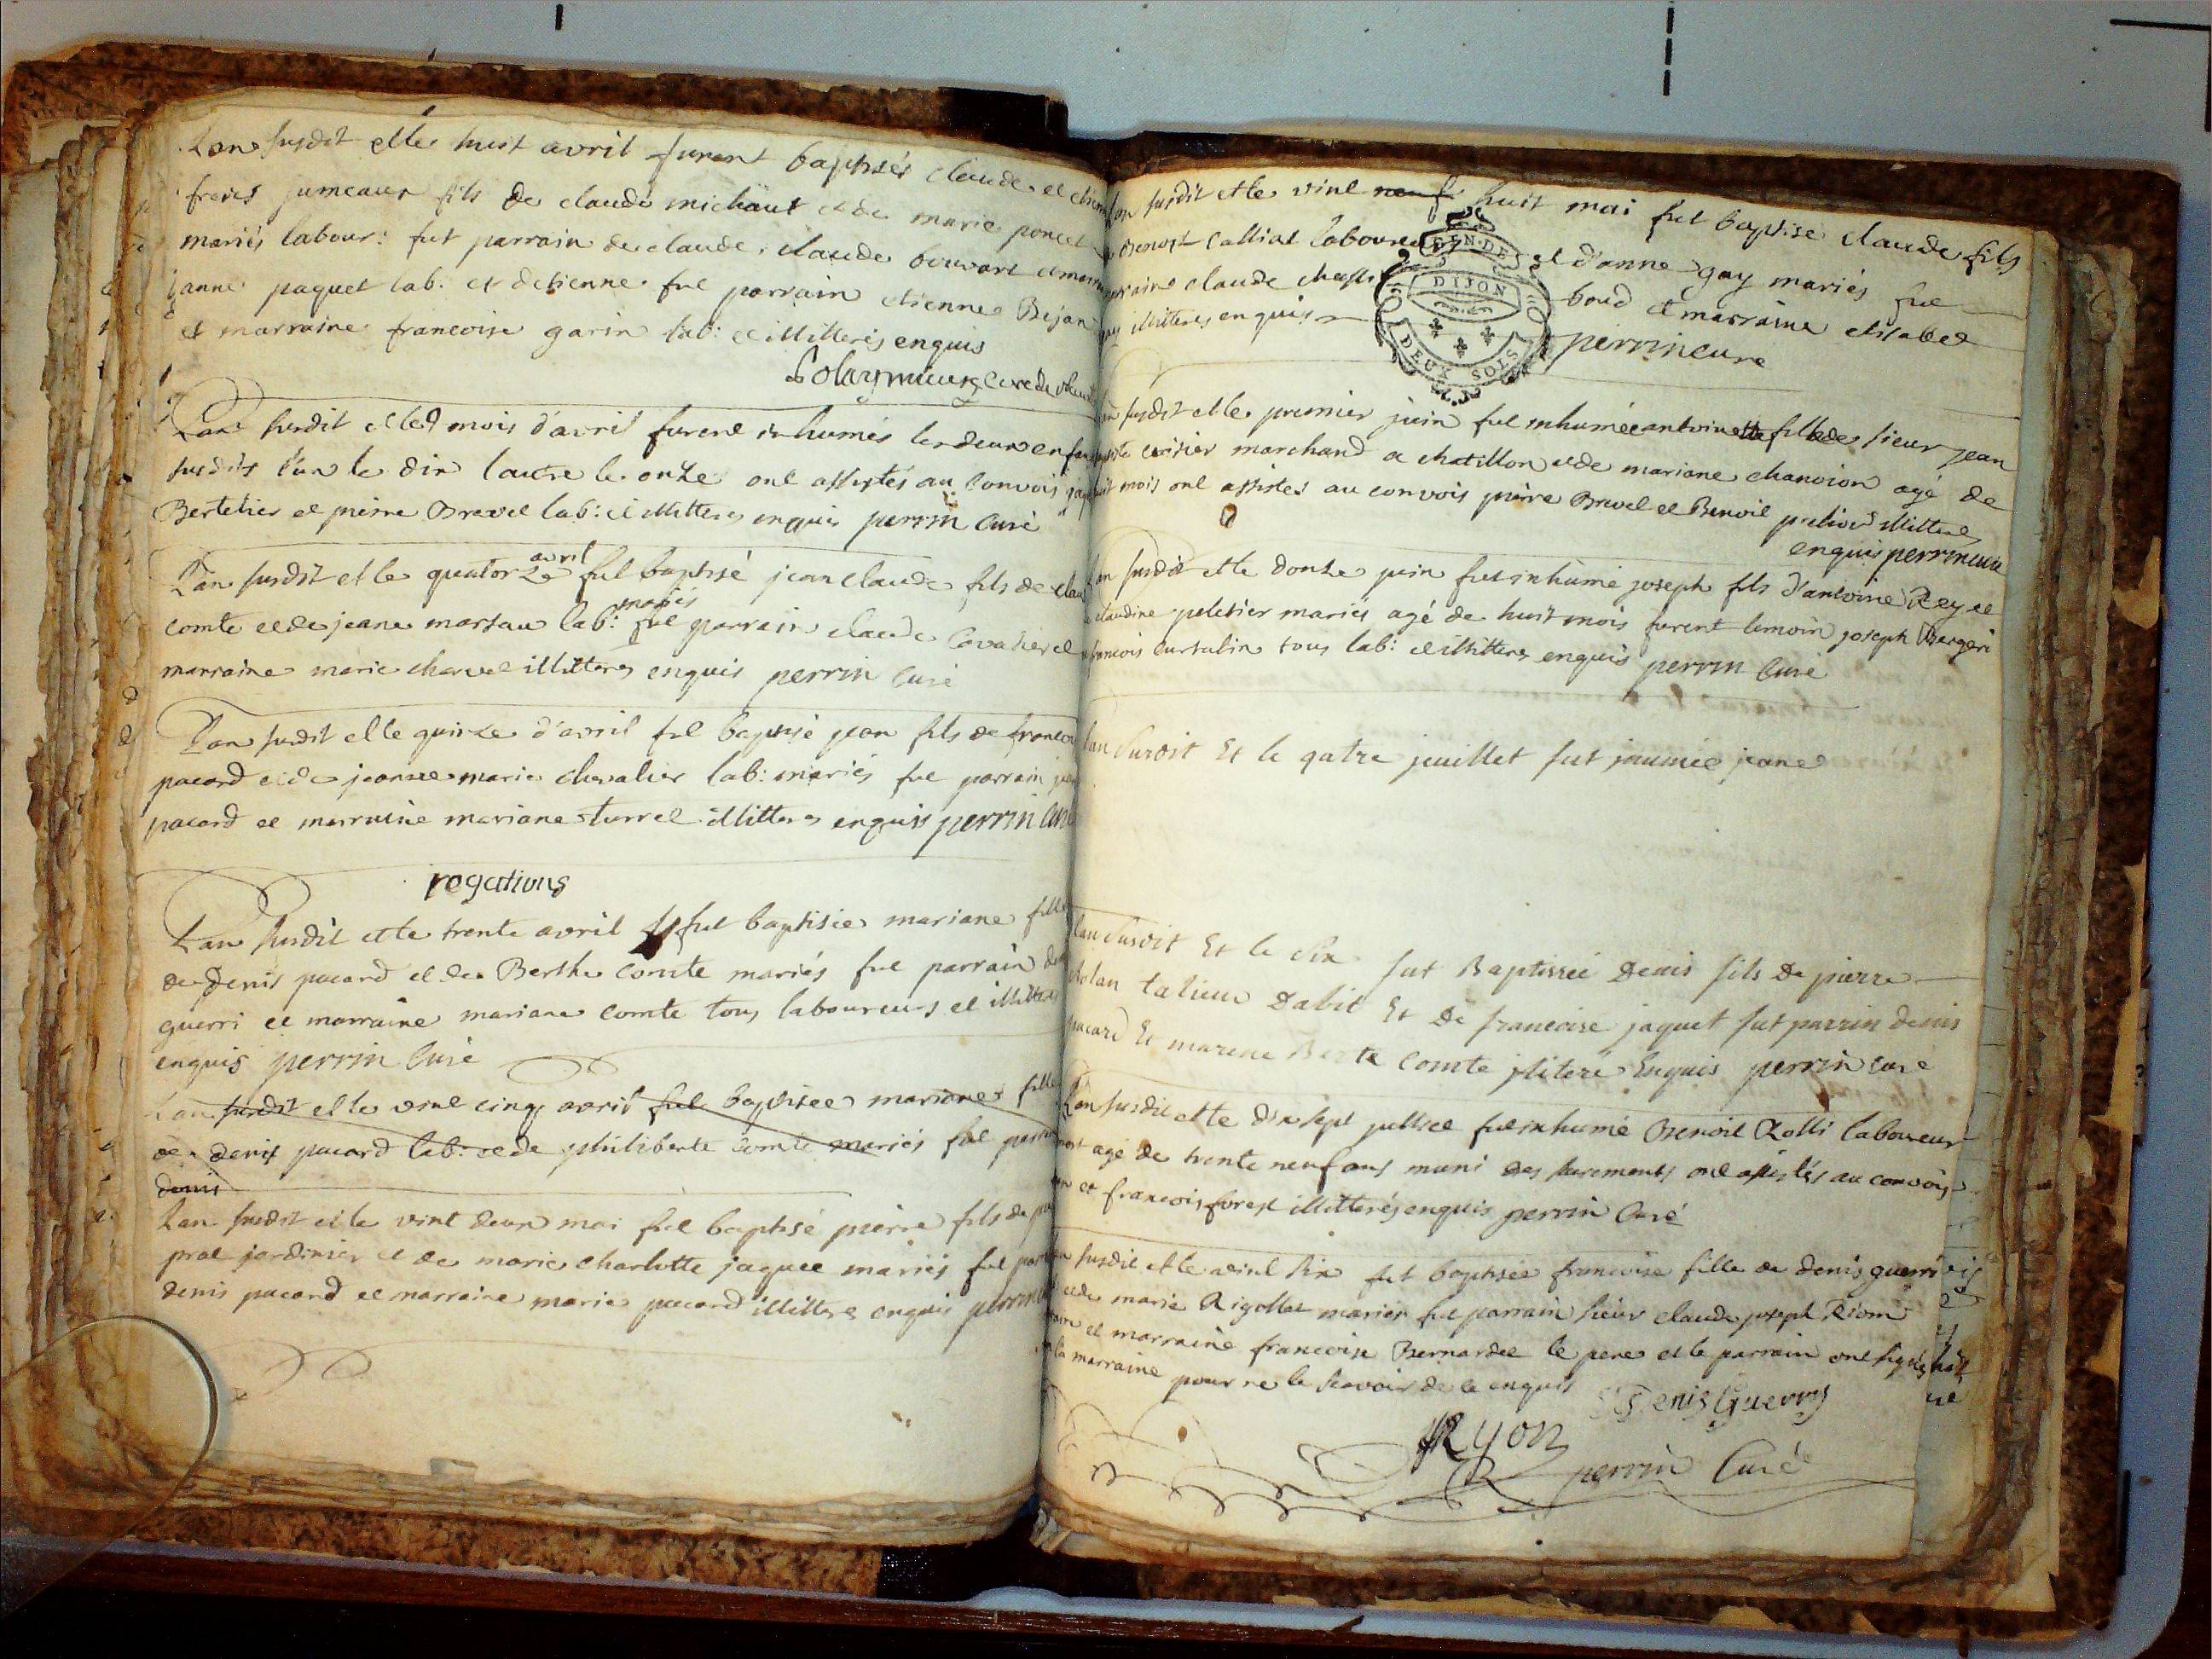 Lan susdit et le huit avril furent baptisés claude et etienne
freres jumeaux fils de claude michaut et de marie poncet
mariés labour: fut parrain de claude, claude bouvart et marraine
janne paquet lab: et detienne fut parrain etienne Bejan
et marraine francoise garin lab: et illitterés enquis
curé de
Lan susdit et led mois d'avril furent inhumés les deux enfans
susdits l'un le dix lautre le onze ont assistés au convois
Bertelier et pierre Dravet lab: et illitteres enquis perrin Curé
Lan susdit et le quatorze avril fut baptisé jean claude fils de
comte et de jeane martau lab: mariés fut parrain claude Cavalier et
marraine marie charvet illitteres enquis perrin Curé
Lan susdit et le quinze d'avril fut baptisé jean fils de francois
pacard et de jeanne marie chevalier lab: mariés fut parrain
pacard et marraine mariane turrel illitteres enquis perrin Curé
rogations
Lan susdit et le trente avril fut baptisée mariane fille
de Denis pacard et de Berthe comte mariés fut parrain
guerri et marraine mariane comte tous laboureurs et illitterés
enquis perrin Curé
Lan susdit et le vint cinq avril fut baptisée mariane fille
de denis pacard lab: et de philiberte comte mariés fut parrain
denis
Lan susdit et le vint deux mai fut baptisé pierre fils de
prat jardinier et de marie charlotte jaquet mariés fut parrain
denis pacard et marraine marie pacard illitteres enquis perrin
susdit et le vint neuf huit mai fut baptise claude fils
Benoist Calliat laboureur et d'anne gay mariés fut
parrain claude boud et marraine elisabet
illitteres enquis perrin cure
GEN·DE
DIJON
DEUX SOLS
susdit et le premier juin fut inhumée antoinette fille de sieur jean
marchand a chatillon et de mariane chanoion agé de
huit mois ont assistes au convois pierre Bravet et Benoit illitteres
enquis perrin cure
Lan susdit et le douze juin fut inhumé joseph fils d'antoine Rey et
claudine peletier mariés agé de huit mois furent temoin joseph Bergeri
francois Curtalin tous lab: et illitteres enquis perrin Curé
lan Surdit Et le qatre jeuillet fut jnumée jeane
lan Susdit Et le Six fut Baptissée Denis fils De pierre
talieur Dabit Et De francoise jaquet fut parrin denis
pacard Et marene Berte Comte jliteré Enquis perrin curé
Lan susdit et le dix sept juillet fut inhumé Benoit Rolli laboureur
agé de trente neuf ans muni des sacrements ont assistés au convois
et francois forest illitterés enquis perrin Curé
susdit et le vint six fut baptisée francoise fille de denis guerri
et de marie Rigollet mariés fut parrain sieur claude joseph Riom
et marraine francoise Bernardet le pere et le parrain ont signés
la marraine pour ne le scavoir de ce enquis
Denis Guerry
Ryon
perrin Curé